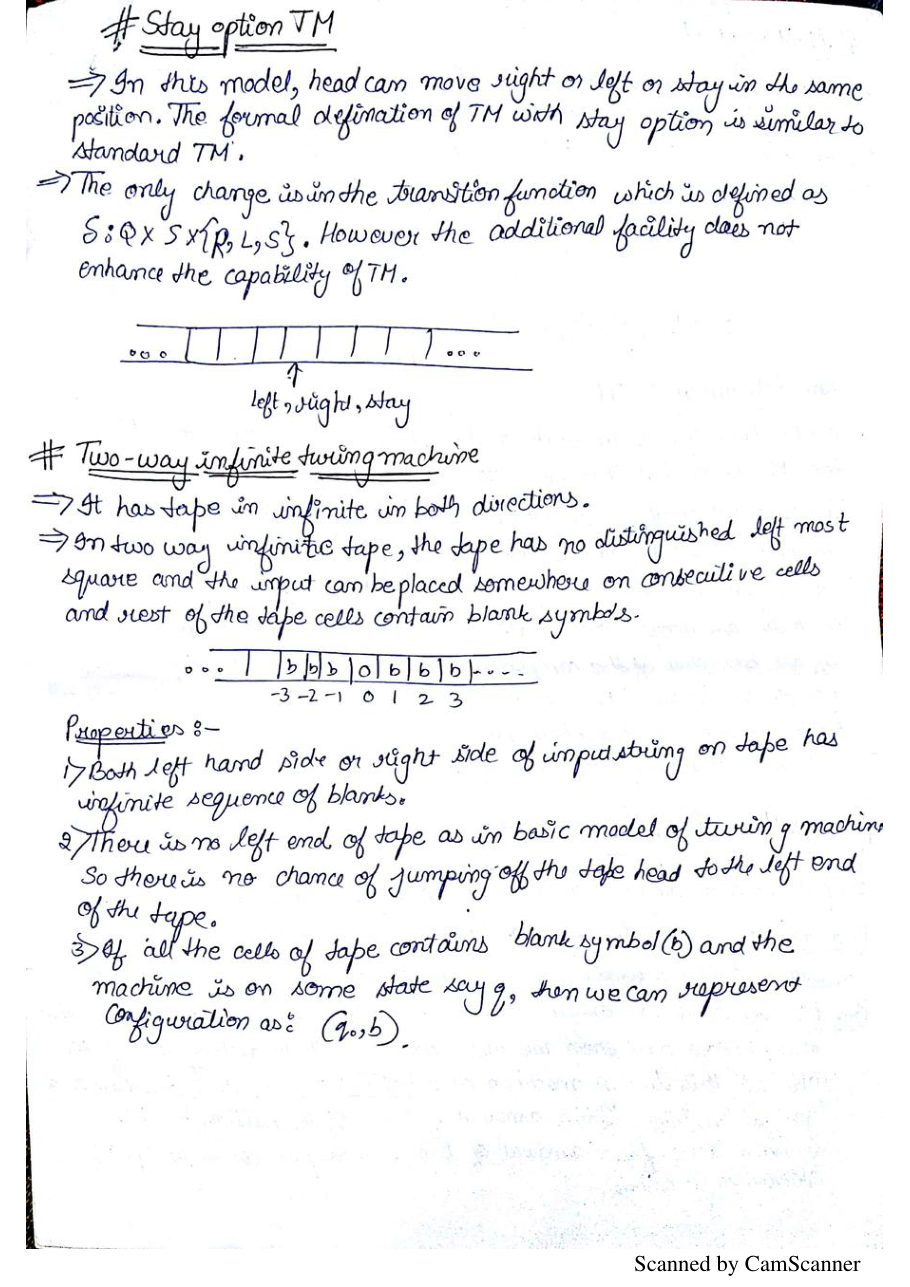 # Stay option TM
=> In this model, head can move right or left or stay in the same
position. The formal defination of TM with stay option is similar to
standard TM.
=> The only change is in the transition function which is defined as
δ: Q x S x {R, L, S}. However the additional facility does not
enhance the capability of TM.
... ...
left, right, stay
# Two-way infinite turing machine
=> It has tape in infinite in both directions.
=> In two way infinitic tape, the tape has no distinguished left most
square and the input can be placed somewhere on consecutive cells
and rest of the tape cells contain blank symbols.
... b b b 0 b b b ....
-3 -2 -1 0 1 2 3
Properties :-
1> Both left hand side or right side of input string on tape has
infinite sequence of blanks.
2> There is no left end of tape as in basic model of turing machine
So there is no chance of jumping off the tape head to the left end
of the tape.
3> If all the cells of tape contains blank symbol (b) and the
machine is on some state say q, then we can represent
Configuration as: (q₀, b).
Scanned by CamScanner